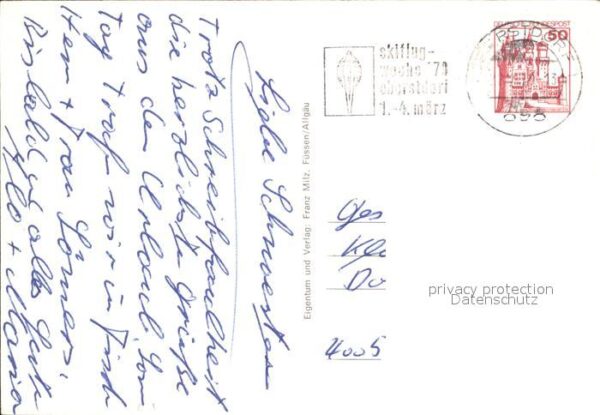 Liebe Schwester
Trotz Schreibfaulheit
die herzlichsten Grüße
aus dem Urlaub.
Tag trafen wir in Fisch
Herr + Frau
Bis bald u. alles Gute
Flo + Maria
Eigentum und Verlag: Franz Milz, Füssen/Allgäu
skiflug-
woche '79
oberstdorf
1.-4. märz
DEUTSCHE BUNDESPOST
50
Ges
Kle
Do
4005
privacy protection
Datenschutz